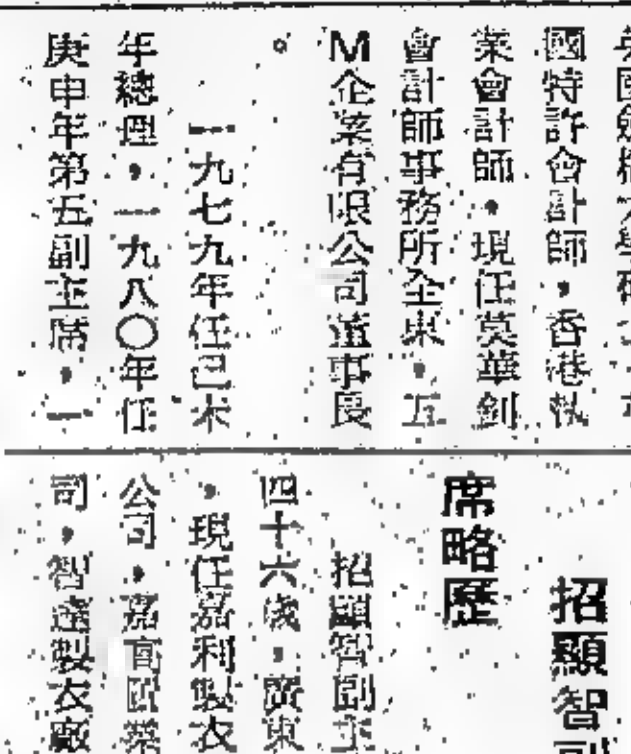 國特許會計師，香港執
業會計師。現任莫華釗
會計師事務所全東，五
M企業有限公司董事長
。
一九七九年任己未
年總理，一九八〇年任
庚申年第五副主席，一
招顯智副
席略歷
招顯智副主
四十六歲，廣東
，現任嘉利製衣
公司，嘉高國業
司，智達製衣廠